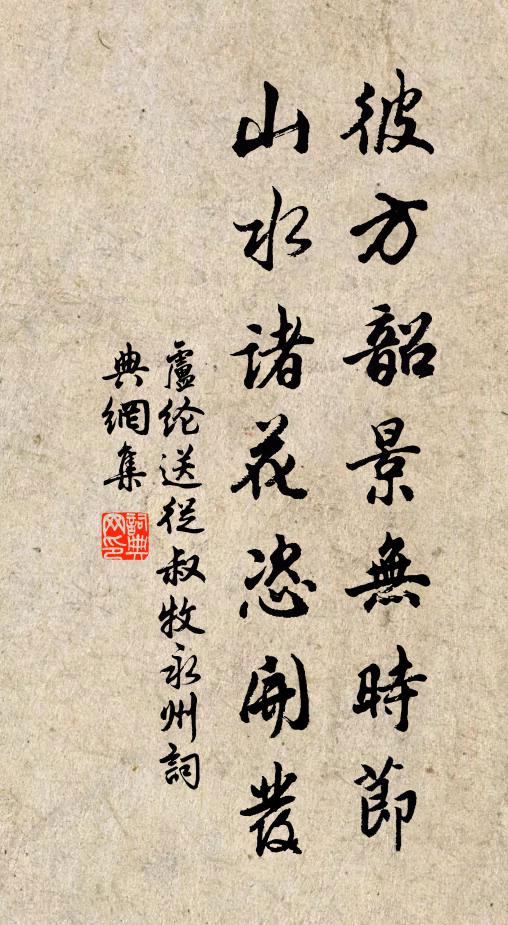 彼方韶景無時節
山水諸花恣開發
盧纶送從叔牧永州詞
典網集
詞典网印